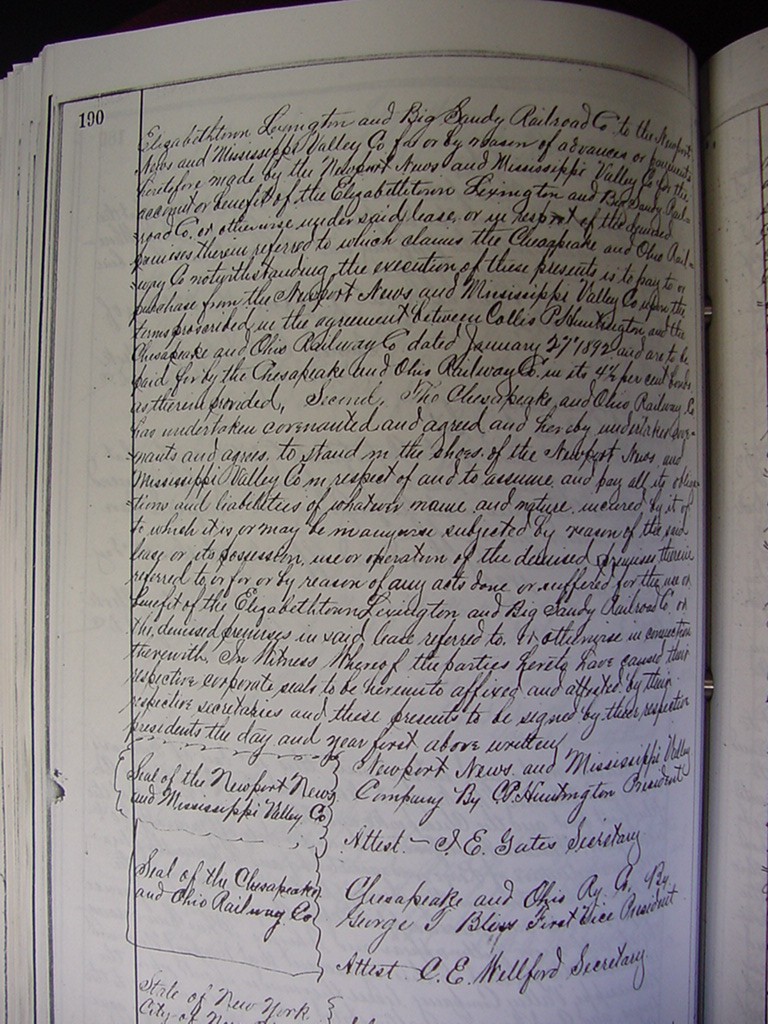 190
Elizabethtown Lexington and Big Sandy Railroad Co to the Newport
News and Mississippi Valley Co for or by reason of advances or payments
heretofore made by the Newport News and Mississippi Valley Co for the
account or benefit of the Elizabethtown Lexington and Big Sandy Rail-
road Co. or otherwise under said lease, or in respect of the demised
premises therein referred to which claims the Cheaspeake and Ohio Rail-
way Co notwithstanding the execution of these presents is to pay to or
purchase from the Newport News and Mississippi Valley Co upon the
terms proscribed in the agreement between Collis P. Huntington, and the
Chesapeake and Ohio Railway Co dated January 27" 1892 and are to be
paid for by the Chesapeake and Ohio Railway Co. in its 4½ per cent bonds
as therein provided, Second, The Chesapeake, and Ohio Railway Co
has undertaken covenanted and agreed and hereby undertakes cove-
-nants and agrees, to stand in the shoes of the Newport News and
Mississippi Valley Co in respect of and to assume and pay all its obliga-
-tions and liabilities of whatever name and nature incured by it or
to which it is or may be in anywise subjected by reason of the said
lease or its possession, use or operation of the demised premises therein
referred to, or for or by reason of any acts done or suffered for the use or
benefit of the Elizabethtown Lexington and Big Sandy Railroad Co, or
the, demised premises in said lease referred to, or otherwise in connection
therewith, In Witness Whereof the parties hereto have caused their
respective corporate seals to be hereunto affixed and attested by their
respective secretaries and these presents to be signed by their respective
presidents the day and year first above written
Seal of the Newport News
and Mississippi Valley Co
Newport News and Mississippi Valley
Company By C.P. Huntington President
Attest - I. E. Gates Secretary
Seal of the Chesapeake
and Ohio Railway Co
Chesapeake and Ohio Ry Co. By
George T Bliss First Vice President
Attest C. E. Wellford Secretary
State of New York
City of New